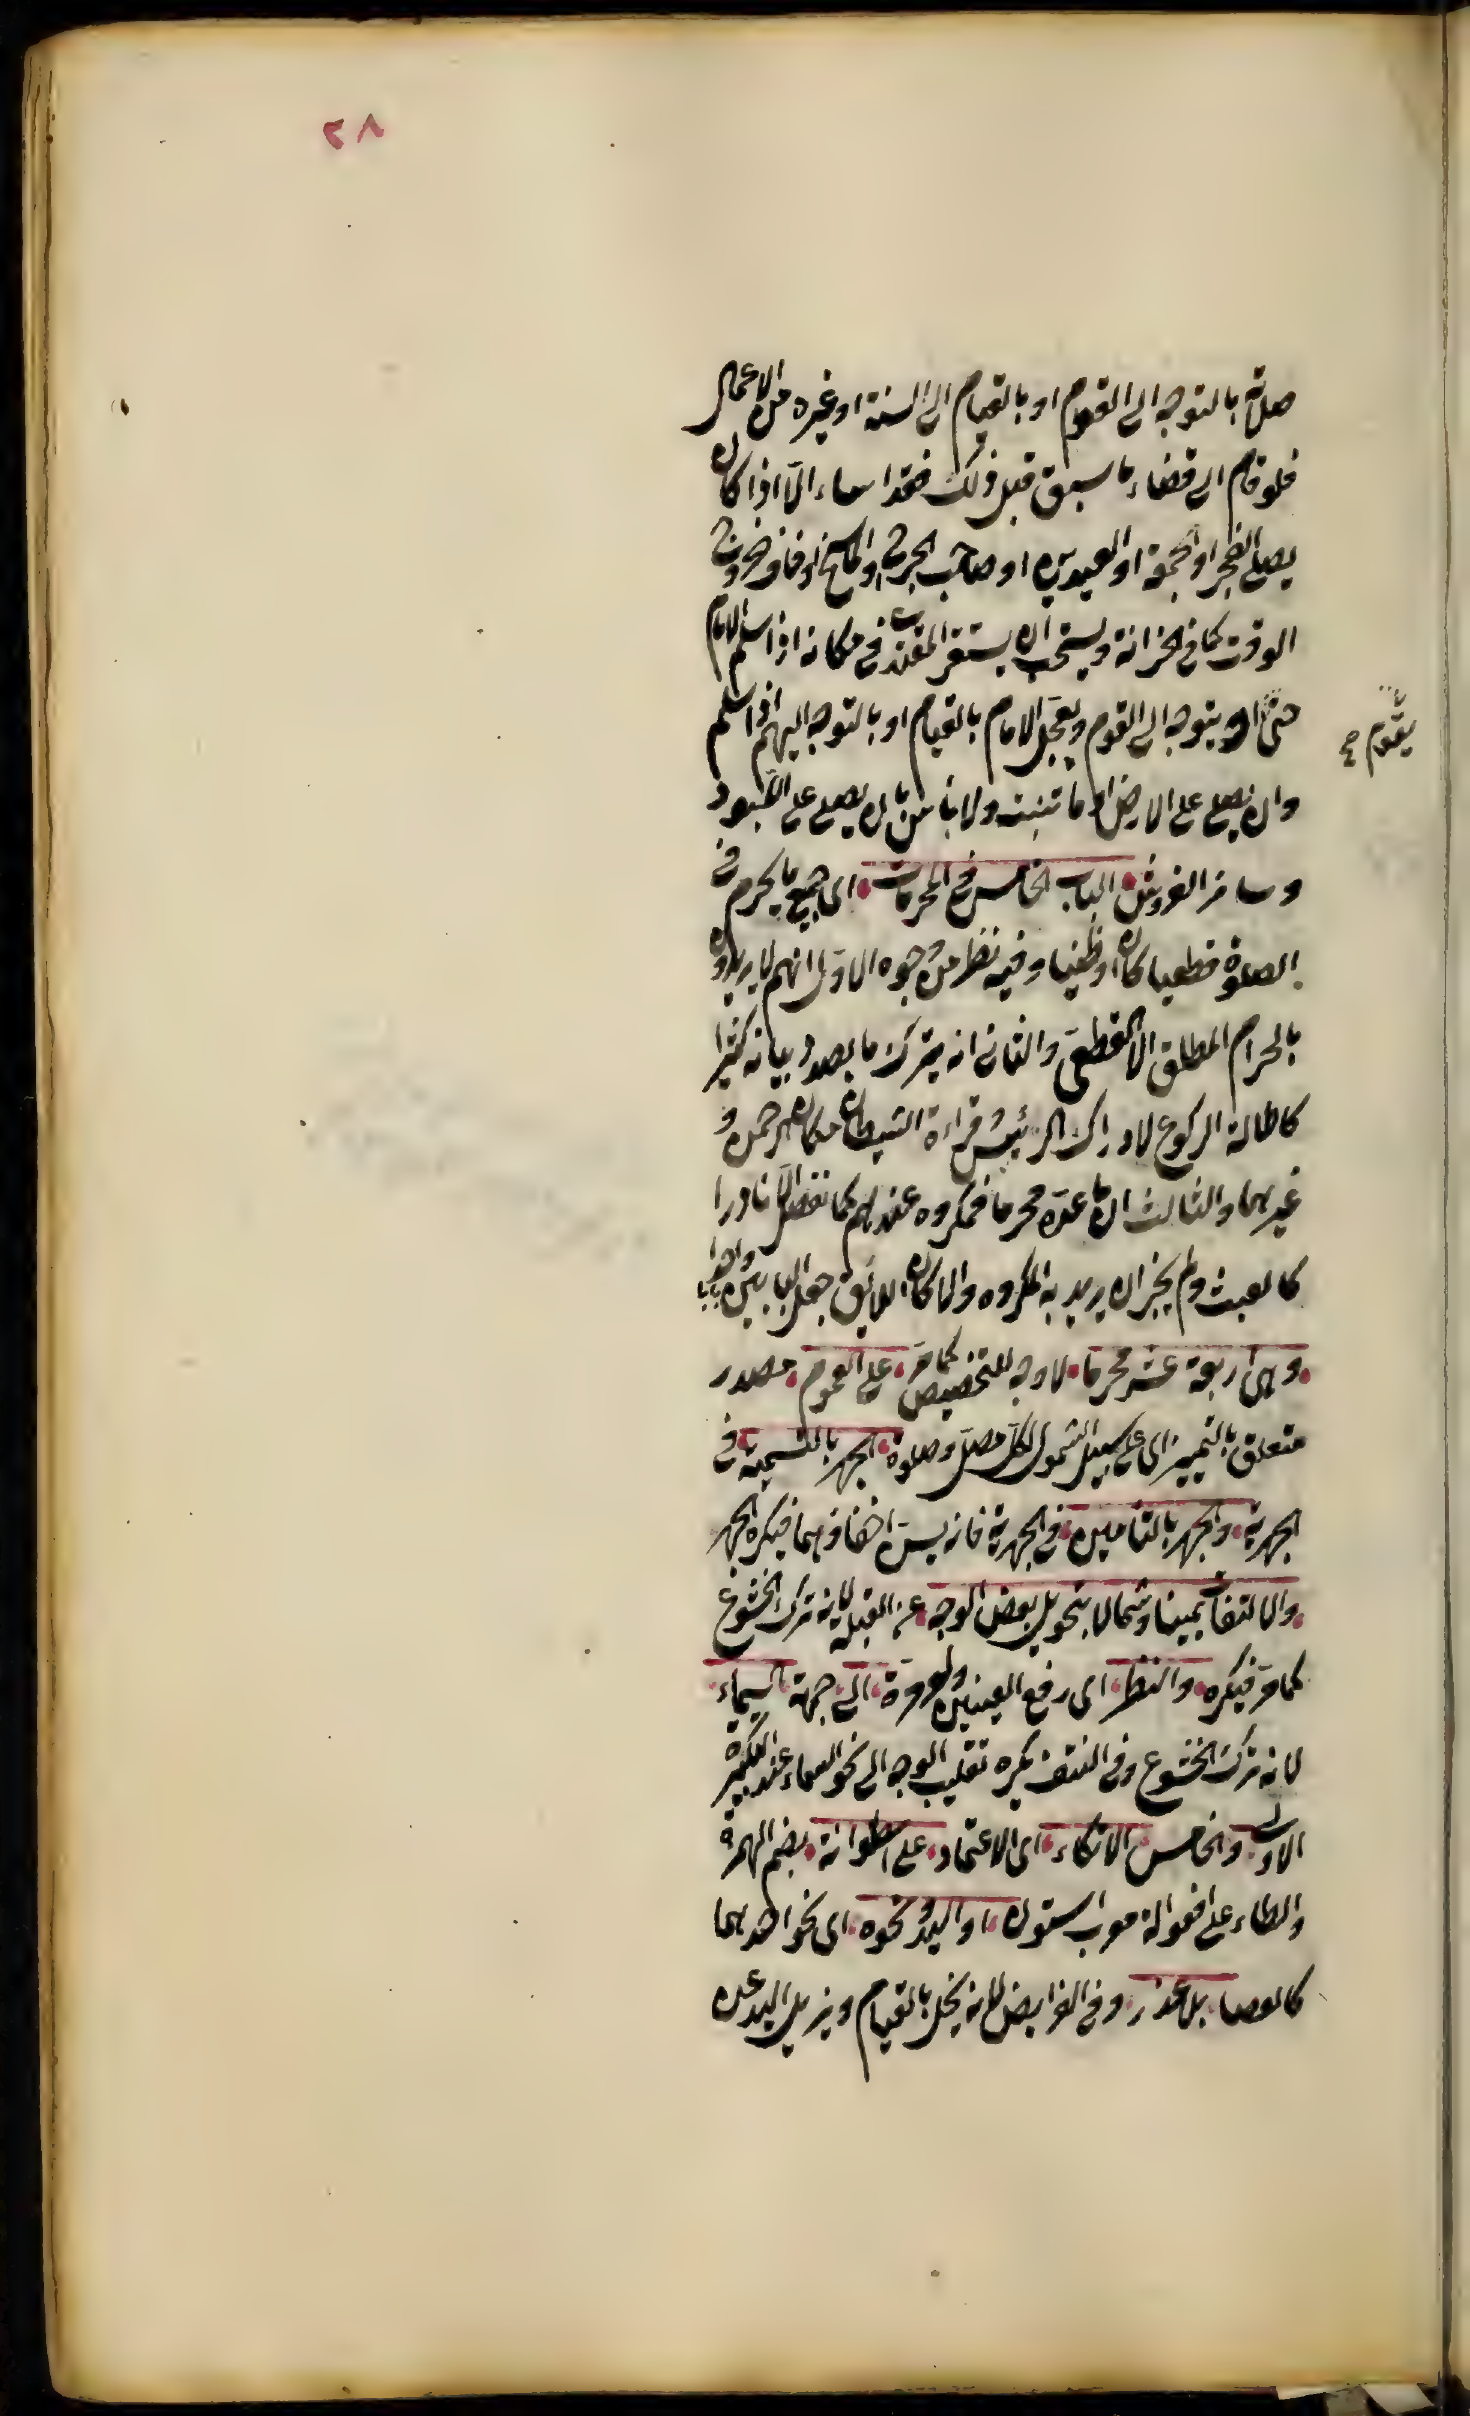 ٢٨
صلاته بالتوجه الى القوم او بالقيام الى السنة او غيره من الاعمال
فلو قام الى قضاء ما سبق قبل ذلك فقد اساء الا اذا كان
يصلى الفجر او الجمعة او العيدين او صاحب الجرح او الماسح او خاف خروج
الوقت كما في الخزانة ويستحب ان يستقر المقتدى في مكانه اذا سلم الامام
حتى او يتوجه الى القوم ويعجل الامام بالقيام او بالتوجه اليهم اذا سلم
يقوم صح
وان يصلى على الارض او ما تنبت ولا باس بان يصلى على اللبود
وسائر الفروش الباب الخامس في المحرمات اى جميع ما يحرم في
الصلوة قطعيا كان او ظنيا وفيه نظر من وجوه الاول انهم لا يريدون
بالحرام المطلق الا القطعى والثانى انه يترك ما بصدد بيانه كثيرا
كاطالة الركوع لادراك الرئيس قراءة الشيطان مكان الرحمن و
غيرهما والثالث ان ما عده محرما فمكروه عندهم كما نفصل الا نادرا
كالعبث ولم يجز ان يريد به المكروه والا كان اللائق جعل البابين واحدا بابا
وهى اربعة عشر محرما لا وجه للتخصيص كما مر على العموم مصدر
متعلق بالتمييز اى على سبيل الشمول لكل مصل وصلوة الجهر بالتسمية في
الجهرية والجهر بالتامين في الجهرية فانه يسن اخفاؤهما فيكره الجهر
والالتفات يمينا وشمالا بتحويل بعض الوجه عن القبلة لانه ترك الخشوع
كما مر فيكره والنظر اى رفع العينين ولو مرة الى جهة السماء
لانه ترك الخشوع وفي النتف يكره تقليب الوجه الى نحو السماء عند التكبيرة
الاولى والخامس الاتكاء اى الاعتماد على اسطوانة بضم الهمزة
والطاء على افعوالة معرب استون او اليد ونحوه اى نحو احدهما
كالعصا بلا عذر وفي الفرايض لانه يخل بالقيام ويزيل اليد عن